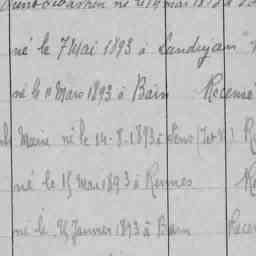 né le 19 mai
né le 7 Mai 1893 à Landujan
né le 11 Mars 1893 à Bain Recensé
Marie né le 14-8-1893 à
né le 15 Mai 1893 à Rennes Re
né le 25 Janvier 1893 à Bain Recen